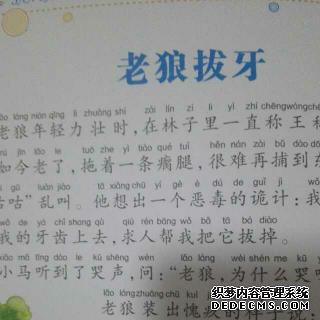 老狼拔牙
lǎo láng nián qīng lì zhuàng shí zài lín zi lǐ yì zhí chēng wáng chēng
老狼年轻力壮时，在林子里一直称王称
rú jīn lǎo le tuō zhe yì tiáo qué tuǐ hěn nán zài bǔ dào dōng
如今老了，拖着一条瘸腿，很难再捕到东
gū luàn jiào tā xiǎng chū yí gè è dú de guǐ jì wǒ
咕咕”乱叫。他想出一个恶毒的诡计：我
wǒ de yá chǐ shàng qù qiú rén bāng wǒ bǎ tā bá diào
我的牙齿上去，求人帮我把它拔掉。
xiǎo mǎ tīng dào le kū shēng wèn lǎo láng wèi shén me kū
小马听到了哭声，问：“老狼，为什么哭
lǎo láng zhuāng chū kuì jiù
老狼装出愧疚的
织梦内容管理系统
DEDECMS.COM